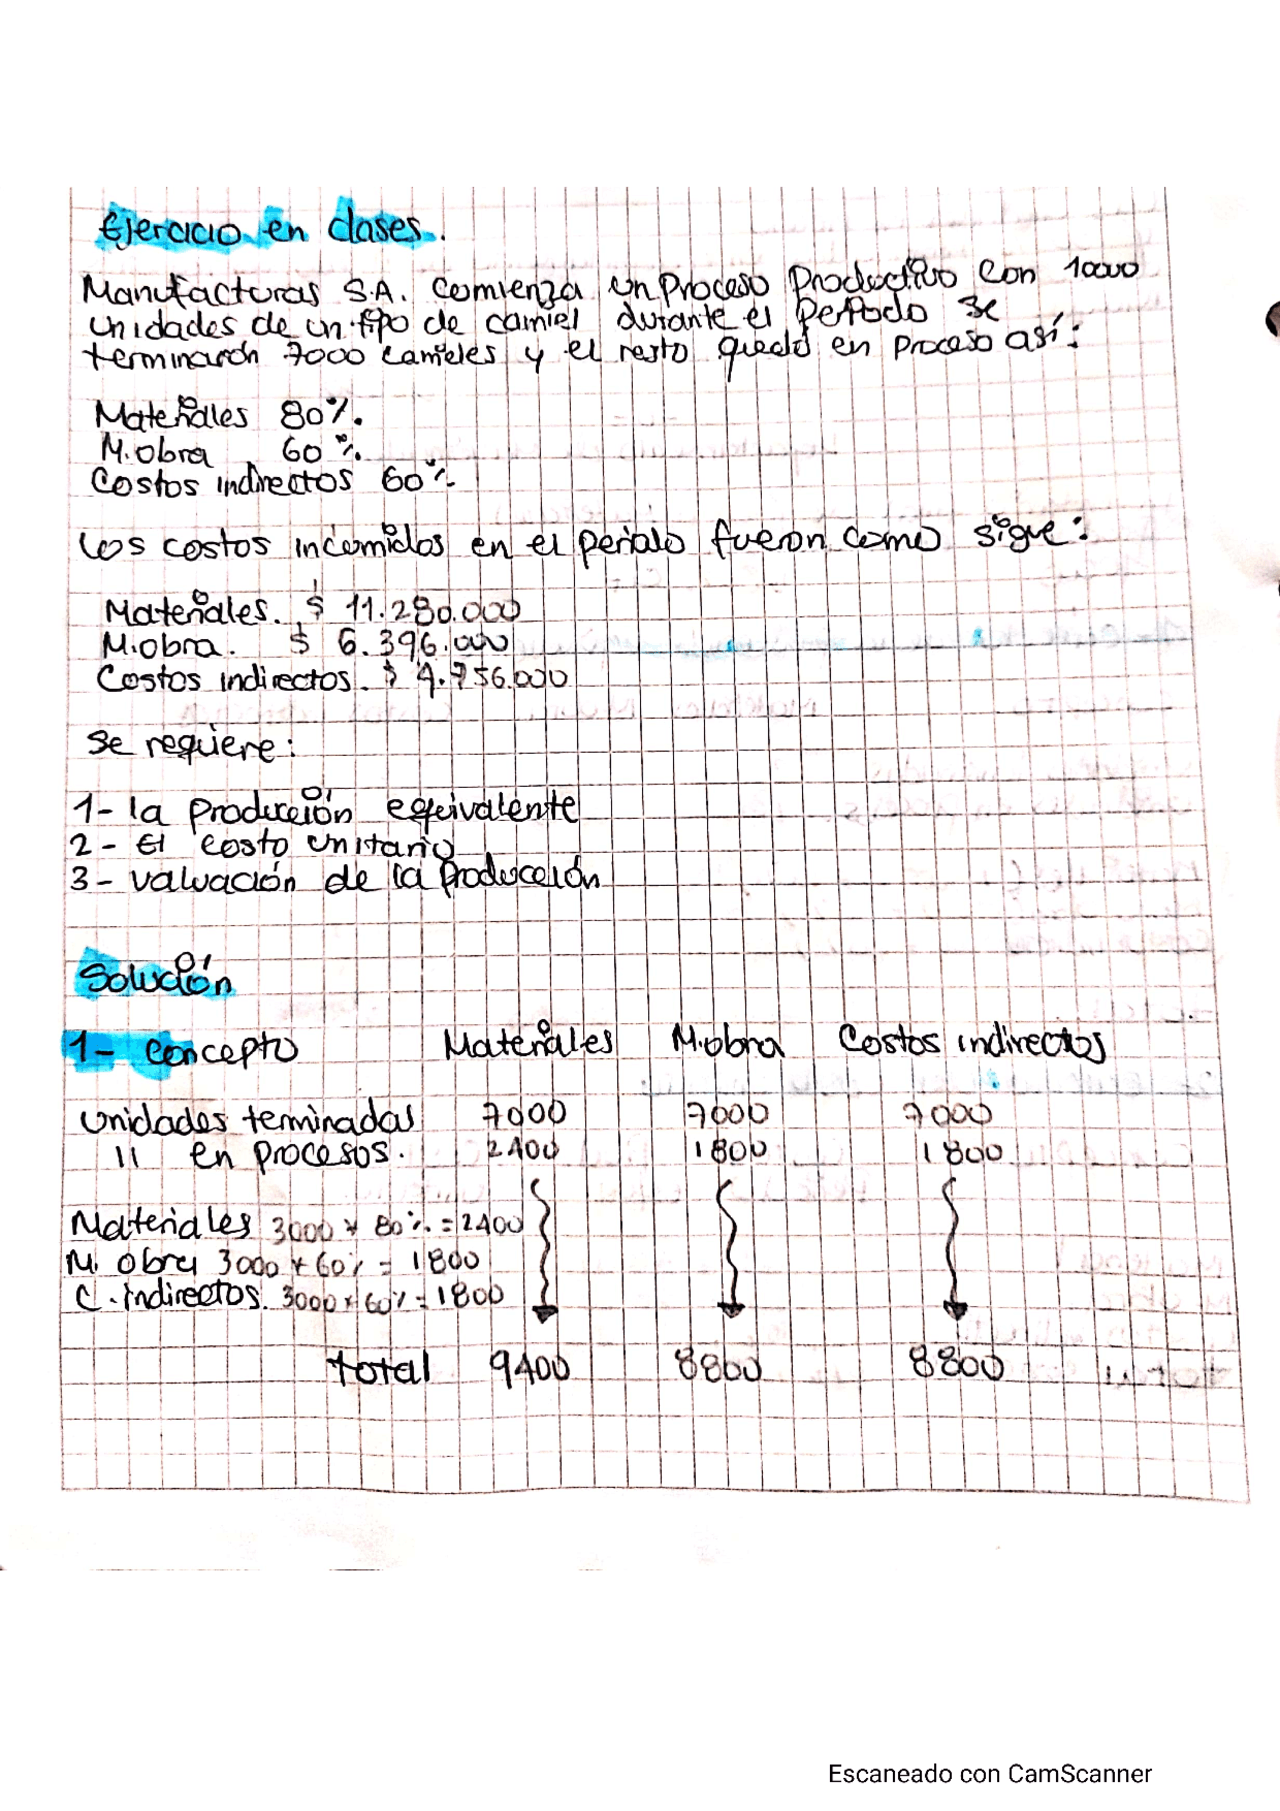 Ejercicio en clases.
Manufacturas S.A. comienza un proceso productivo con 10000
unidades de un tipo de carriel durante el período se
terminarón 7000 carrieles y el resto quedó en proceso así:
Materiales 80%.
M.obra 60%.
Costos indirectos 60%
Los costos incurridos en el periodo fueron como sigue:
Materiales. $ 11.280.000
M.obra. $ 6.396.000
Costos indirectos. $ 4.756.000
se requiere:
1- la producción equivalente
2- El costo unitario
3- valuación de la producción
Solución
1- concepto Materiales M.obra Costos indirectos
Unidades terminadas 7000 7000 7000
11 en procesos. 2400 1800 1800
Materiales 3000 * 80%. = 2400
M. obra 3000 * 60% = 1800
C. indirectos. 3000 * 60% = 1800
total 9400 8800 8800
Escaneado con CamScanner